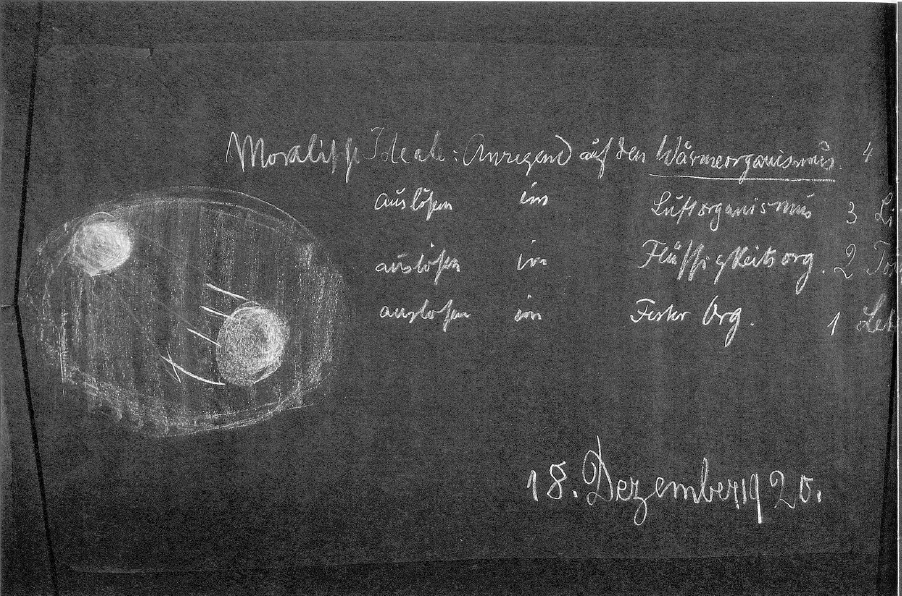 Moralische Ideale: Anregend auf den Wärmeorganismus. 4
auslösen im Luftorganismus 3 Li
auslösen im Flüssigkeitsorg. 2 Ton
auslösen im Fester Org. 1 Leb
18. Dezember 1920.